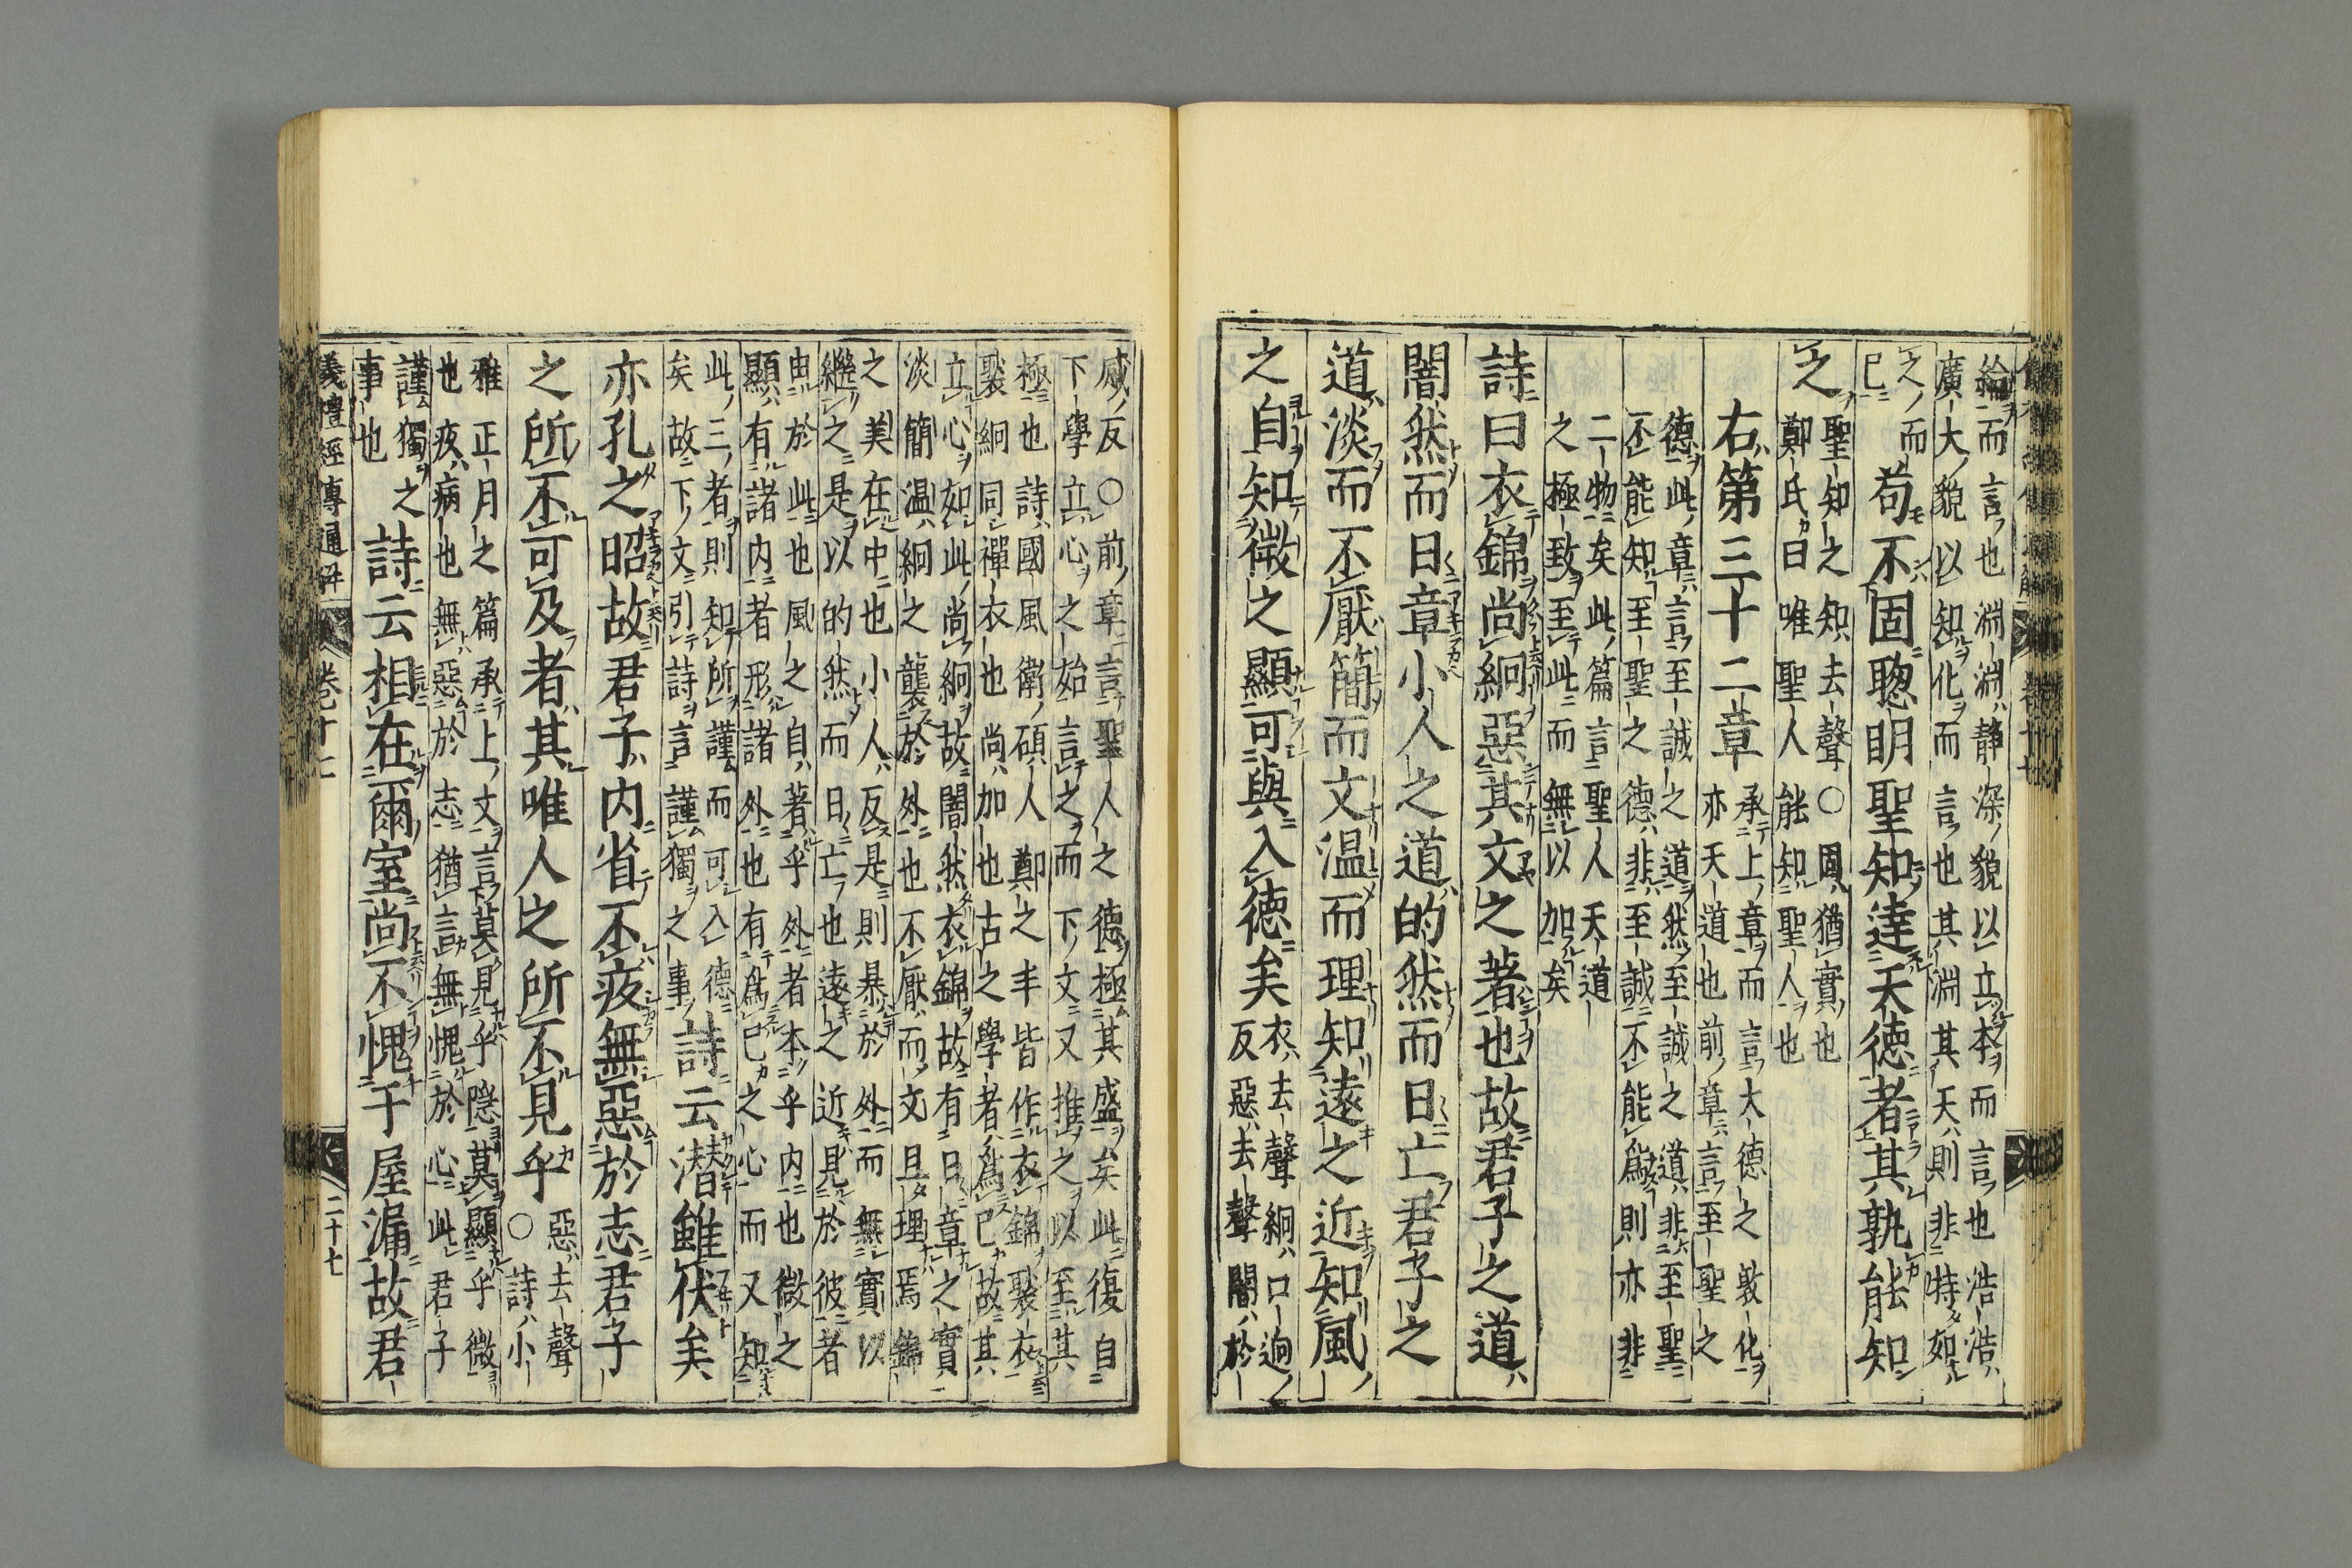 綸而言也淵淵靜深貌以立本而言也浩浩
廣大貌以知化而言也其淵其天則非特如
之而
已
苟不固聰明聖知達天徳者其孰能知
之
聖知之知去聲○固猶實也
鄭氏曰唯聖人能知聖人也
右第三十二章
承上章而言大德之敦化
亦天道也前章言至聖之
德此章言至誠之道然至誠之道非至聖
不能知至聖之德非至誠不能爲則亦非
二物矣此篇言聖人天道
之極致至此而無以加矣
詩曰衣錦尚絅惡其文之著也故君子之道
闇然而日章小人之道的然而日亡君子之
道淡而不厭簡而文温而理知遠之近知風
之自知微之顯可與入徳矣
衣去聲絅口迥
反惡去聲闇於
感反○前章言聖人之德極其盛矣此復自
下學立心之始言之而下文又推之以至其
極也詩國風衛碩人鄭之丰皆作衣錦褧衣
褧絅同禪衣也尚加也古之學者爲己故其
立心如此尚絅故闇然衣錦故有日章之實
淡簡温絅之襲於外也不厭而文且理焉錦
之美在中也小人反是則暴於外而無實以
繼之是以的然而日亡也遠之近見於彼者
由於此也風之自著乎外者本乎内也微之
顯有諸内者形諸外也有爲己之心而又知
此三者則知所謹而可入德
矣故下文引詩言謹獨之事
詩云潜雖伏矣
亦孔之昭故君子内省不疚無惡於志君子
之所不可及者其唯人之所不見乎
惡去聲
○詩小
雅正月之篇承上文言莫見乎隱莫顯乎微
也疚病也無惡於志猶言無愧於心此君子
謹獨之
事也
詩云相在爾室尚不愧于屋漏故君
義禮經傳通解 卷十七 二十七